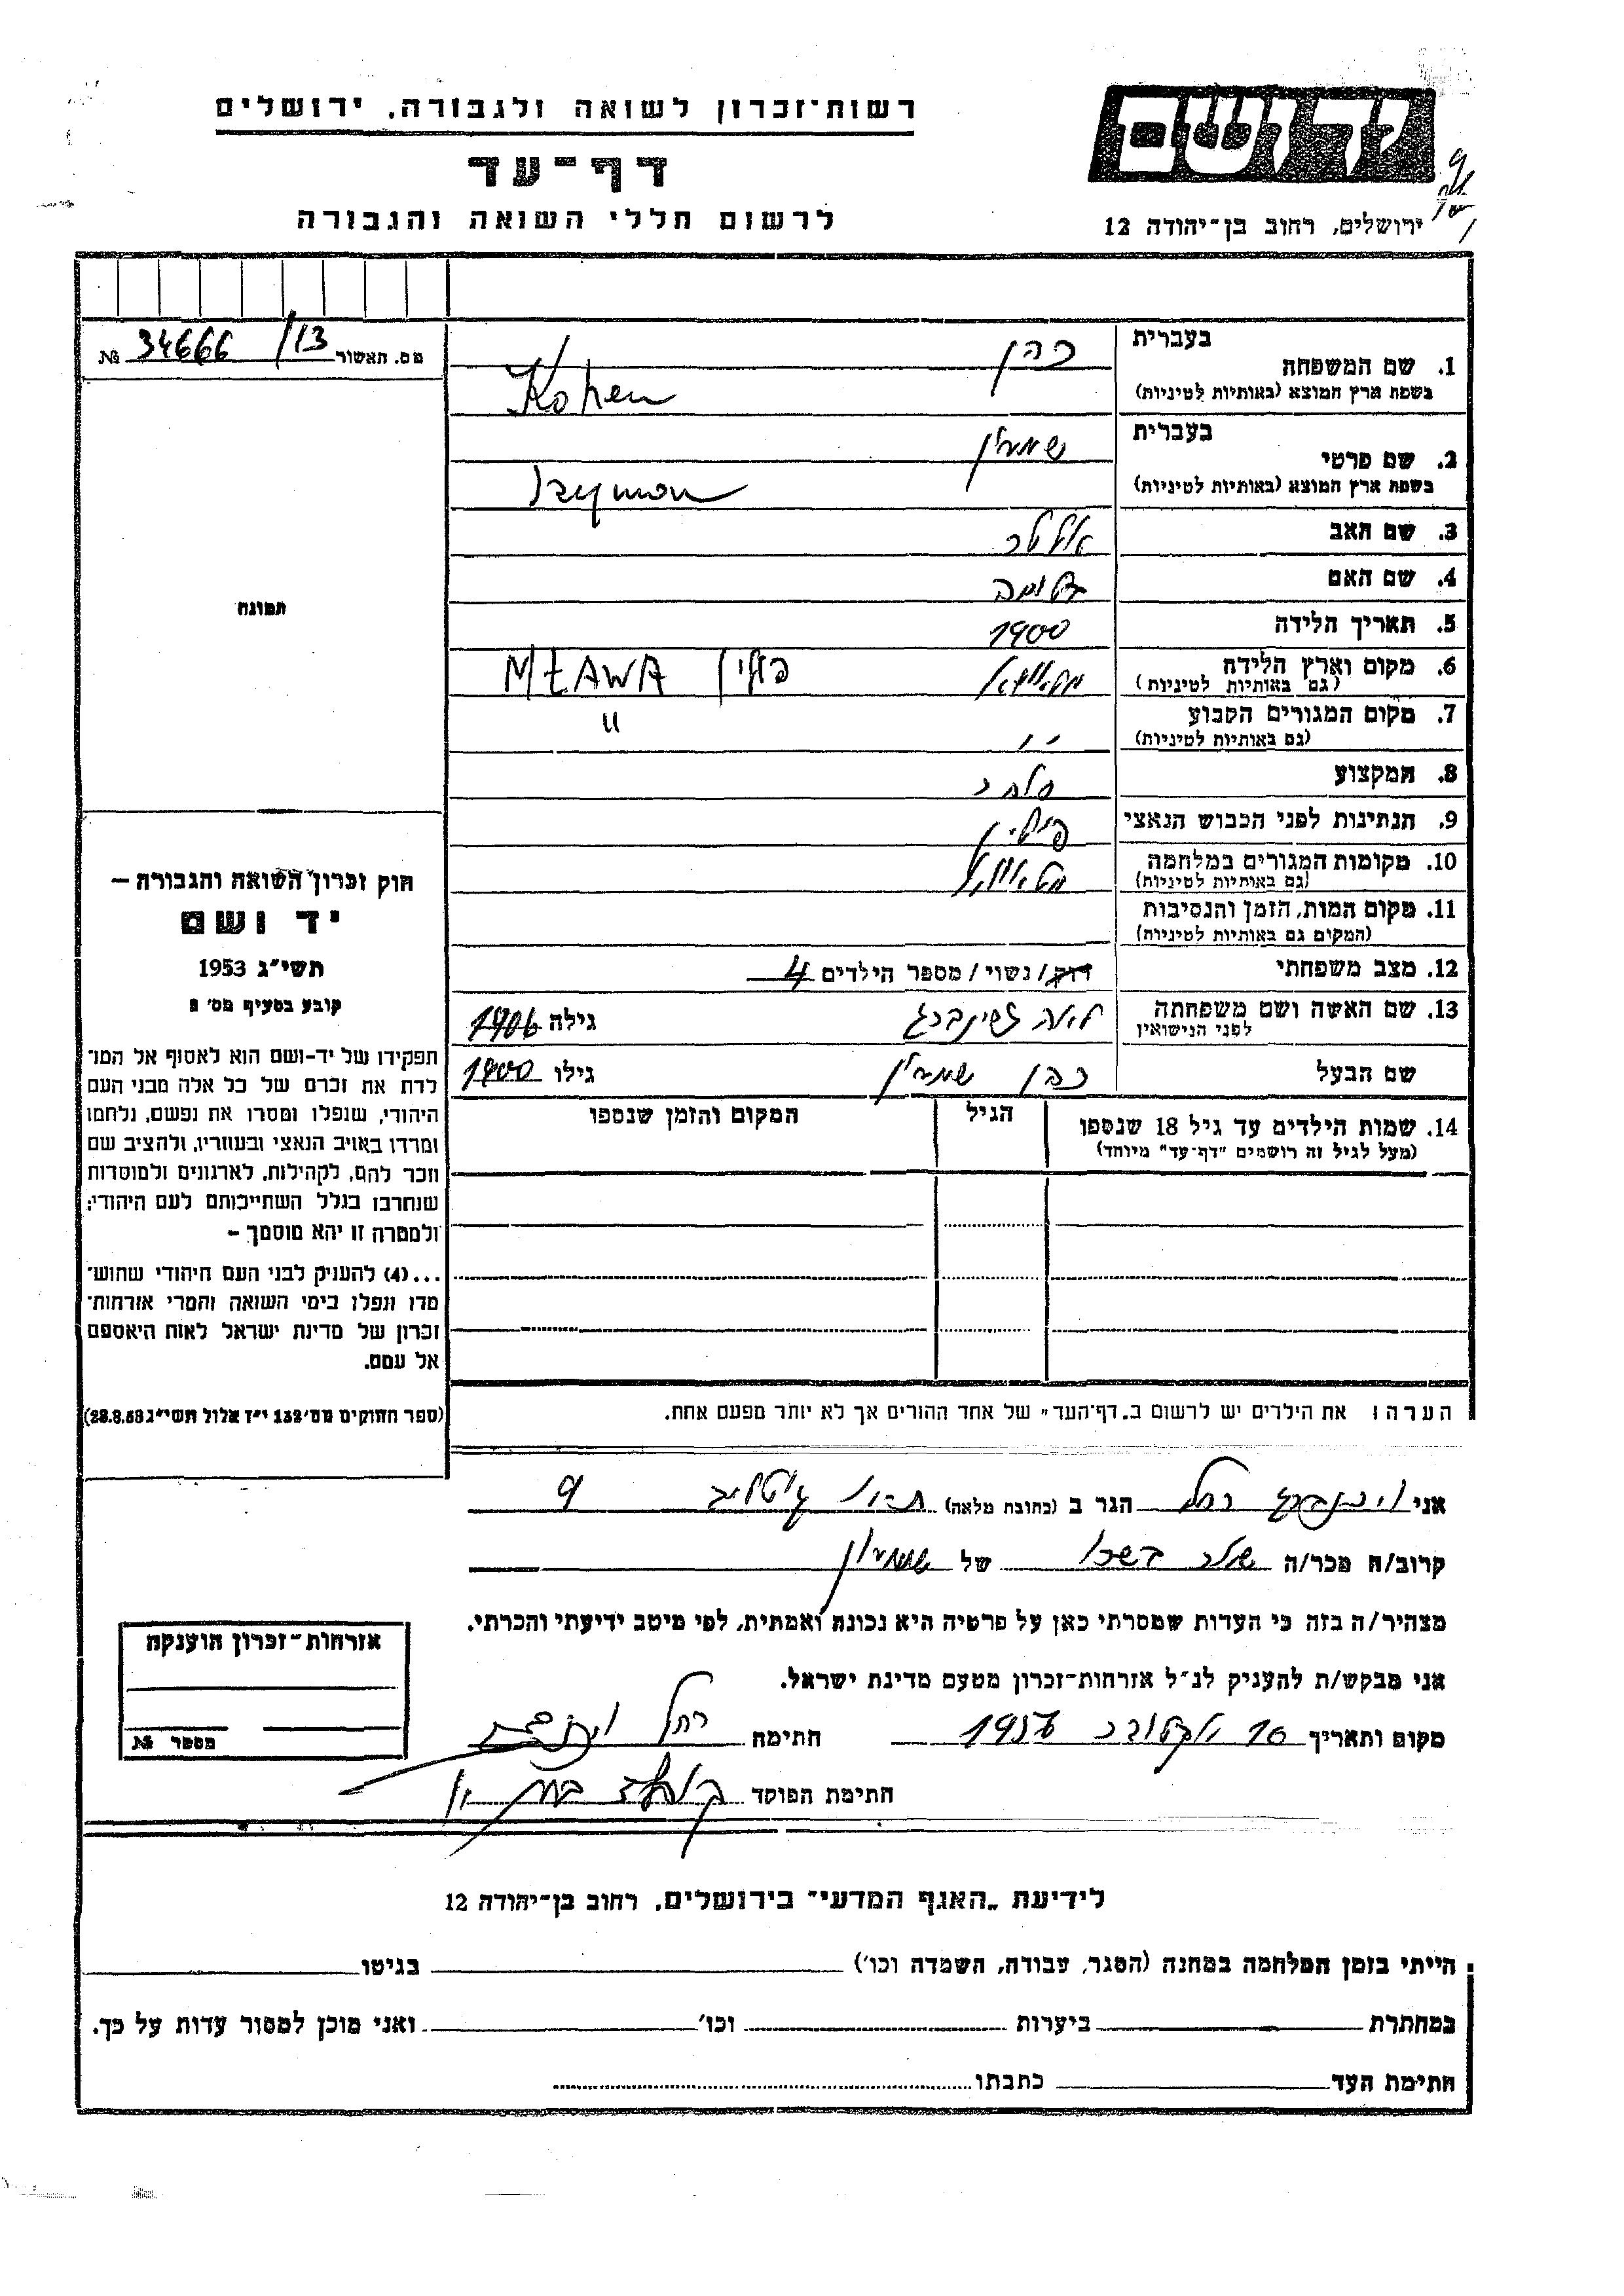 רשות־זכרון לשואה ולגבורה, ירושלים
דף־עד
לרשום חללי השואה והגבורה
יד ושם
ירושלים, רחוב בן־יהודה 12
מס. האשור 34666/13 №
תמונה
חוק זכרון השואה והגבורה –
יד ושם
תשי"ג 1953
קובע בסעיף מס' 2
תפקידו של יד-ושם הוא לאסוף אל המו־
לדת את זכרם של כל אלה מבני העם
היהודי, שנפלו ומסרו את נפשם, נלחמו
ומרדו באויב הנאצי ובעוזריו, ולהציב שם
וזכר להם, לקהילות, לארגונים ולמוסדות
שנחרבו בגלל השתייכותם לעם היהודי;
ולמטרה זו יהא מוסמך –
...(4) להעניק לבני העם היהודי שהוש־
מדו ונפלו בימי השואה והמרי אזרחות־
זכרון של מדינת ישראל לאות היאספם
אל עמם.
(ספר החוקים מס' 132 י"ז אלול תשי"ג 28.8.53)
בעברית כהן
1. שם המשפחה
בשפת ארץ המוצא (באותיות לטיניות) Kohen
בעברית שמעון
2. שם פרטי
בשפת ארץ המוצא (באותיות לטיניות) Szymon
3. שם האב
4. שם האם
5. תאריך הלידה 1900
6. מקום וארץ הלידה מלאווא פולין MŁAWA
(גם באותיות לטיניות)
7. מקום המגורים הקבוע " "
(גם באותיות לטיניות)
8. המקצוע סוחר
9. הנתינות לפני הכבוש הנאצי פולין
10. מקומות המגורים במלחמה מלאווא
(גם באותיות לטיניות)
11. מקום המות, הזמן והנסיבות
(המקום גם באותיות לטיניות)
12. מצב משפחתי רוק/נשוי/מספר הילדים 4
13. שם האשה ושם משפחתה גילה 1906
לפני הנישואין
שם הבעל כהן שמעון גילו 1900
14. שמות הילדים עד גיל 18 שנספו הגיל המקום והזמן שנספו
(מעל לגיל זה רושמים "דף־עד" מיוחד)
הערה: את הילדים יש לרשום ב„דף־העד" של אחד ההורים אך לא יותר מפעם אחת.
אני רחל הגר ב (כתובת מלאה) 9
קרוב/ה מכר/ה של שמעון
מצהיר/ה בזה כי העדות שמסרתי כאן על פרטיה היא נכונה ואמתית, לפי מיטב ידיעתי והכרתי.
אני מבקש/ת להעניק לנ"ל אזרחות־זכרון מטעם מדינת ישראל.
מקום ותאריך 10 אקטובר 1956 חתימה רחל
חתימת הפוקד
אזרחות־זכרון הוענקה
מספר №
לידיעת „האגף המדעי" בירושלים, רחוב בן־יהודה 12
הייתי בזמן המלחמה במחנה (הסגר, עבודה, השמדה וכו') בגיטו
במחתרת ביערות וכו' ואני מוכן למסור עדות על כך.
חתימת העד כתבתו